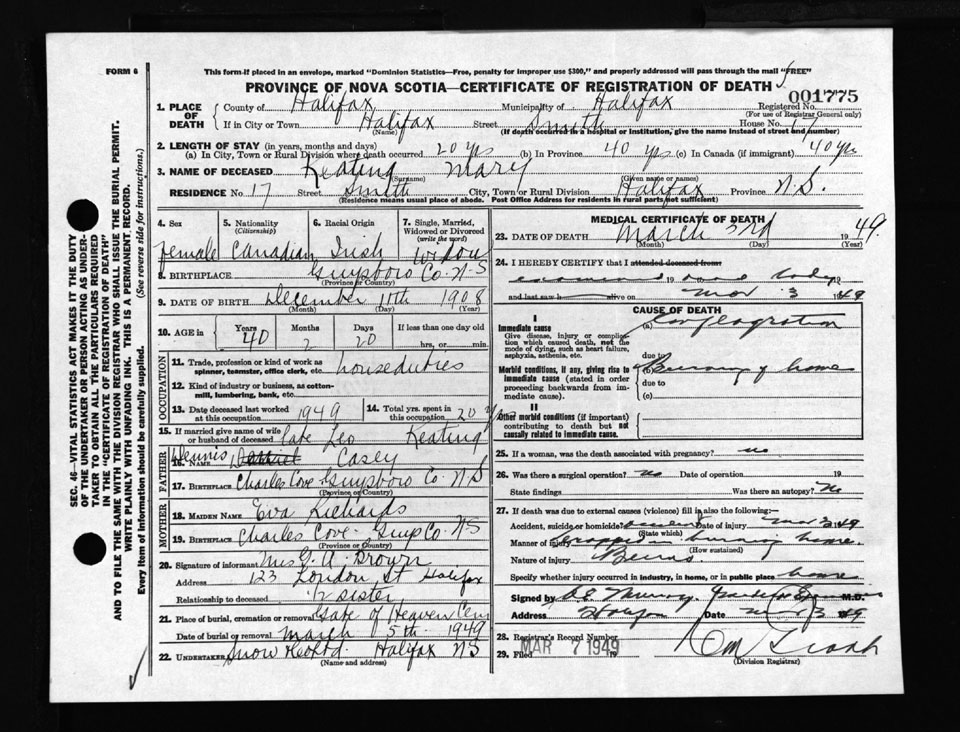 FORM 6
This form if placed in an envelope, marked "Dominion Statistics—Free, penalty for improper use $300," and properly addressed will pass through the mail "FREE"
PROVINCE OF NOVA SCOTIA—CERTIFICATE OF REGISTRATION OF DEATH
001775
1. PLACE OF DEATH County of Halifax Municipality of Halifax Registered No.
(For use of Registrar General only)
If in City or Town Halifax Street Smith House No. 17
(Name) (If death occurred in a hospital or institution, give the name instead of street and number)
2. LENGTH OF STAY (in years, months and days)
(a) In City, Town or Rural Division where death occurred 20 yrs (b) In Province 40 yrs (c) In Canada (if immigrant) 40 yrs
3. NAME OF DECEASED Keating Mary
(Surname) (Given name or names)
RESIDENCE No. 17 Street Smith City, Town or Rural Division Halifax Province N.S.
(Residence means usual place of abode. Post Office Address for residents in rural parts not sufficient)
4. Sex Female
5. Nationality (Citizenship) Canadian
6. Racial Origin Irish
7. Single, Married, Widowed or Divorced (write the word) Widow
8. BIRTHPLACE Guysboro Co. N-S
(Province or Country)
9. DATE OF BIRTH December 11th 1908
(Month) (Day) (Year)
10. AGE in Years 40 Months 2 Days 20 If less than one day old hrs. or min.
OCCUPATION
11. Trade, profession or kind of work as spinner, teamster, office clerk, etc. houseduties
12. Kind of industry or business, as cotton-mill, lumbering, bank, etc.
13. Date deceased last worked at this occupation 1949
14. Total yrs. spent in this occupation 20 yrs
15. If married give name of wife or husband of deceased late Leo Keating
FATHER
16. NAME Dennis Casey
17. BIRTHPLACE Charles Cove Guysboro Co. N S
(Province or Country)
MOTHER
18. MAIDEN NAME Eva Richards
19. BIRTHPLACE Charles Cove Guys Co. N S
(Province or Country)
20. Signature of informant Mrs G. A. Brown
Address 123 London St Halifax
Relationship to deceased 1/2 sister
21. Place of burial, cremation or removal Gate of Heaven Cem
Date of burial or removal March 5th 1949
22. UNDERTAKER Snow & Co Ltd. Halifax NS
(Name and address)
MEDICAL CERTIFICATE OF DEATH
23. DATE OF DEATH March 3rd 1949
(Month) (Day) (Year)
24. I HEREBY CERTIFY that I attended deceased from
examined 19 body 19
and last saw h alive on Mar 3 1949
CAUSE OF DEATH
I
Immediate cause
Give disease, injury or complication which caused death, not the mode of dying, such as heart failure, asphyxia, asthenia, etc.
(a) Conflagration
due to
Morbid conditions, if any, giving rise to immediate cause (stated in order proceeding backwards from immediate cause).
Burning of home
due to
(c)
II
Other morbid conditions (if important) contributing to death but not causally related to immediate cause.
25. If a woman, was the death associated with pregnancy? no
26. Was there a surgical operation? no Date of operation 19
State findings Was there an autopsy? No
27. If death was due to external causes (violence) fill in also the following:—
Accident, suicide or homicide? accident Date of injury Mar 3 1949
(State which)
Manner of injury Trapped in burning home.
(How sustained)
Nature of injury Burns
Specify whether injury occurred in industry, in home, or in public place home
Signed by M.D.
Address Halifax Date Mar 3 1949
28. Registrar's Record Number
29. Filed MAR 7 1949 19
(Division Registrar)
SEC. 46—VITAL STATISTICS ACT MAKES IT THE DUTY OF THE UNDERTAKER OR PERSON ACTING AS UNDERTAKER TO OBTAIN ALL THE PARTICULARS REQUIRED IN THE "CERTIFICATE OF REGISTRATION OF DEATH" AND TO FILE THE SAME WITH THE DIVISION REGISTRAR WHO SHALL ISSUE THE BURIAL PERMIT.
WRITE PLAINLY WITH UNFADING INK. THIS IS A PERMANENT RECORD.
Every item of Information should be carefully supplied. (See reverse side for instructions.)